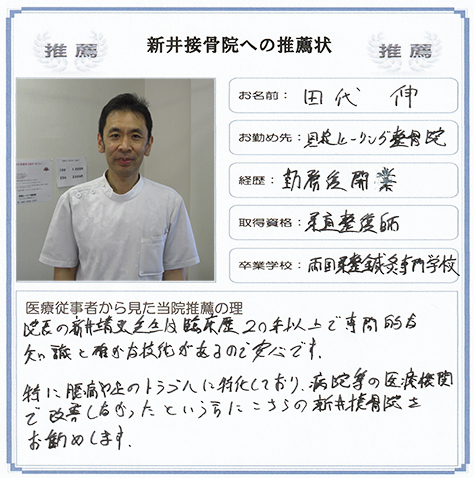 推薦
新井接骨院への推薦状
推薦
お名前： 田代 伸
お勤め先： ヒーリング整骨院
経歴： 勤務後開業
取得資格： 柔道整復師
卒業学校： 両国柔整鍼灸専門学校
医療従事者から見た当院推薦の理
院長の新井靖史先生は臨床歴20年以上で専門的な
知識と確かな技術があるので安心です。
特に腰痛や足のトラブルに特化しており、病院等の医療機関
で改善しなかったという方にこちらの新井接骨院を
お勧めします。